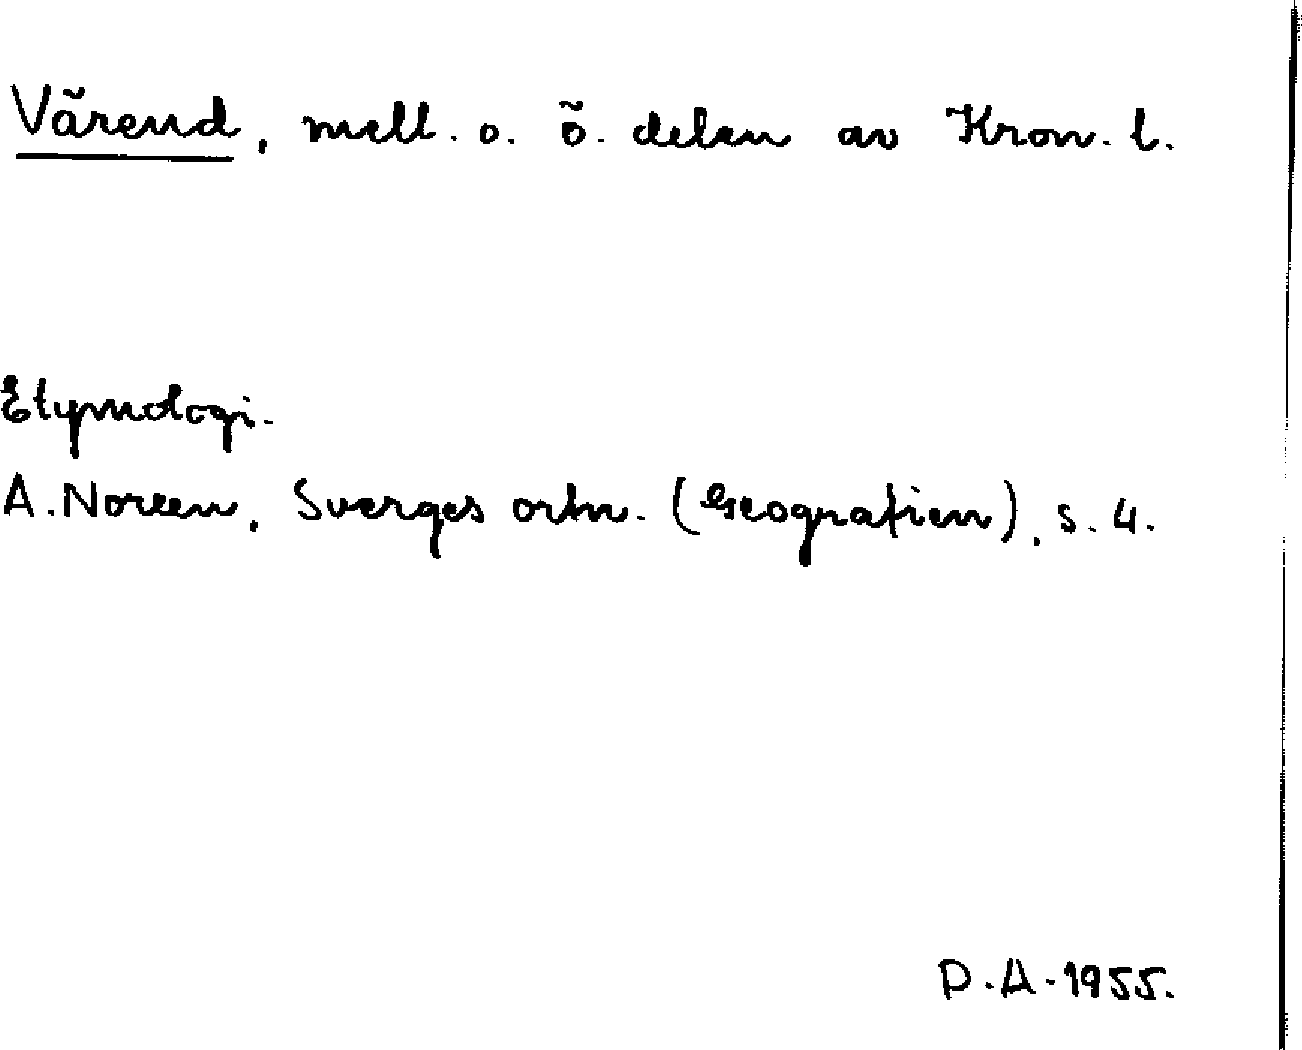 Värend, mell. o. ö. delen av Kron. l.
Etymologi.
A. Noreen, Sverges ortn. (Geografien), s. 4.
D. A. 1955.